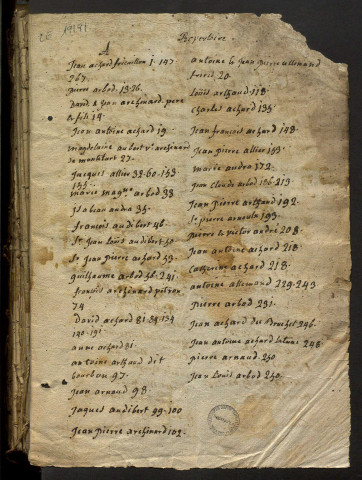 2E 19191
Repertoire.
A
Jean achard 1-147-
267.
pierre arbod. 13-36.
David & Jean archinard. pere
& fils 14.
Jean antoine achard 19.
magdelaine archinard
de montelart 27.
Jacques allier 32-60-153
155.
marie arbod 33
Isabeau audra 35.
françois audibert 46.
Sr. Jean loüis audibert 50
Sr. Jean pierre achard 53
guilhaume arbod. 56-241
françois archinard
74.
David achard 81-84-134
140-191.
anne achard 81.
antoine arthaud dit
bourbon 97.
Jean arnaud 98.
Jaques audibert 99-100
Jean Pierre archinard 102.
antoine & Jean pierre
20.
loüis arthaud 118.
Charles achard 135.
Jean françois achard 148.
Jean pierre allier 153.
marie audra 172.
Jean Claude arbod 186-213.
Jean Pierre arthaud 192.
Sr. pierre 193.
pierre & victor andré 208.
Jean antoine achard 218
Catherine achard 218.
antoine allemand 229-243
Pierre arbod 231.
Jean achard des 246.
Jean antoine achard 248
pierre arnaud. 250
Jean Louis arbod 250.